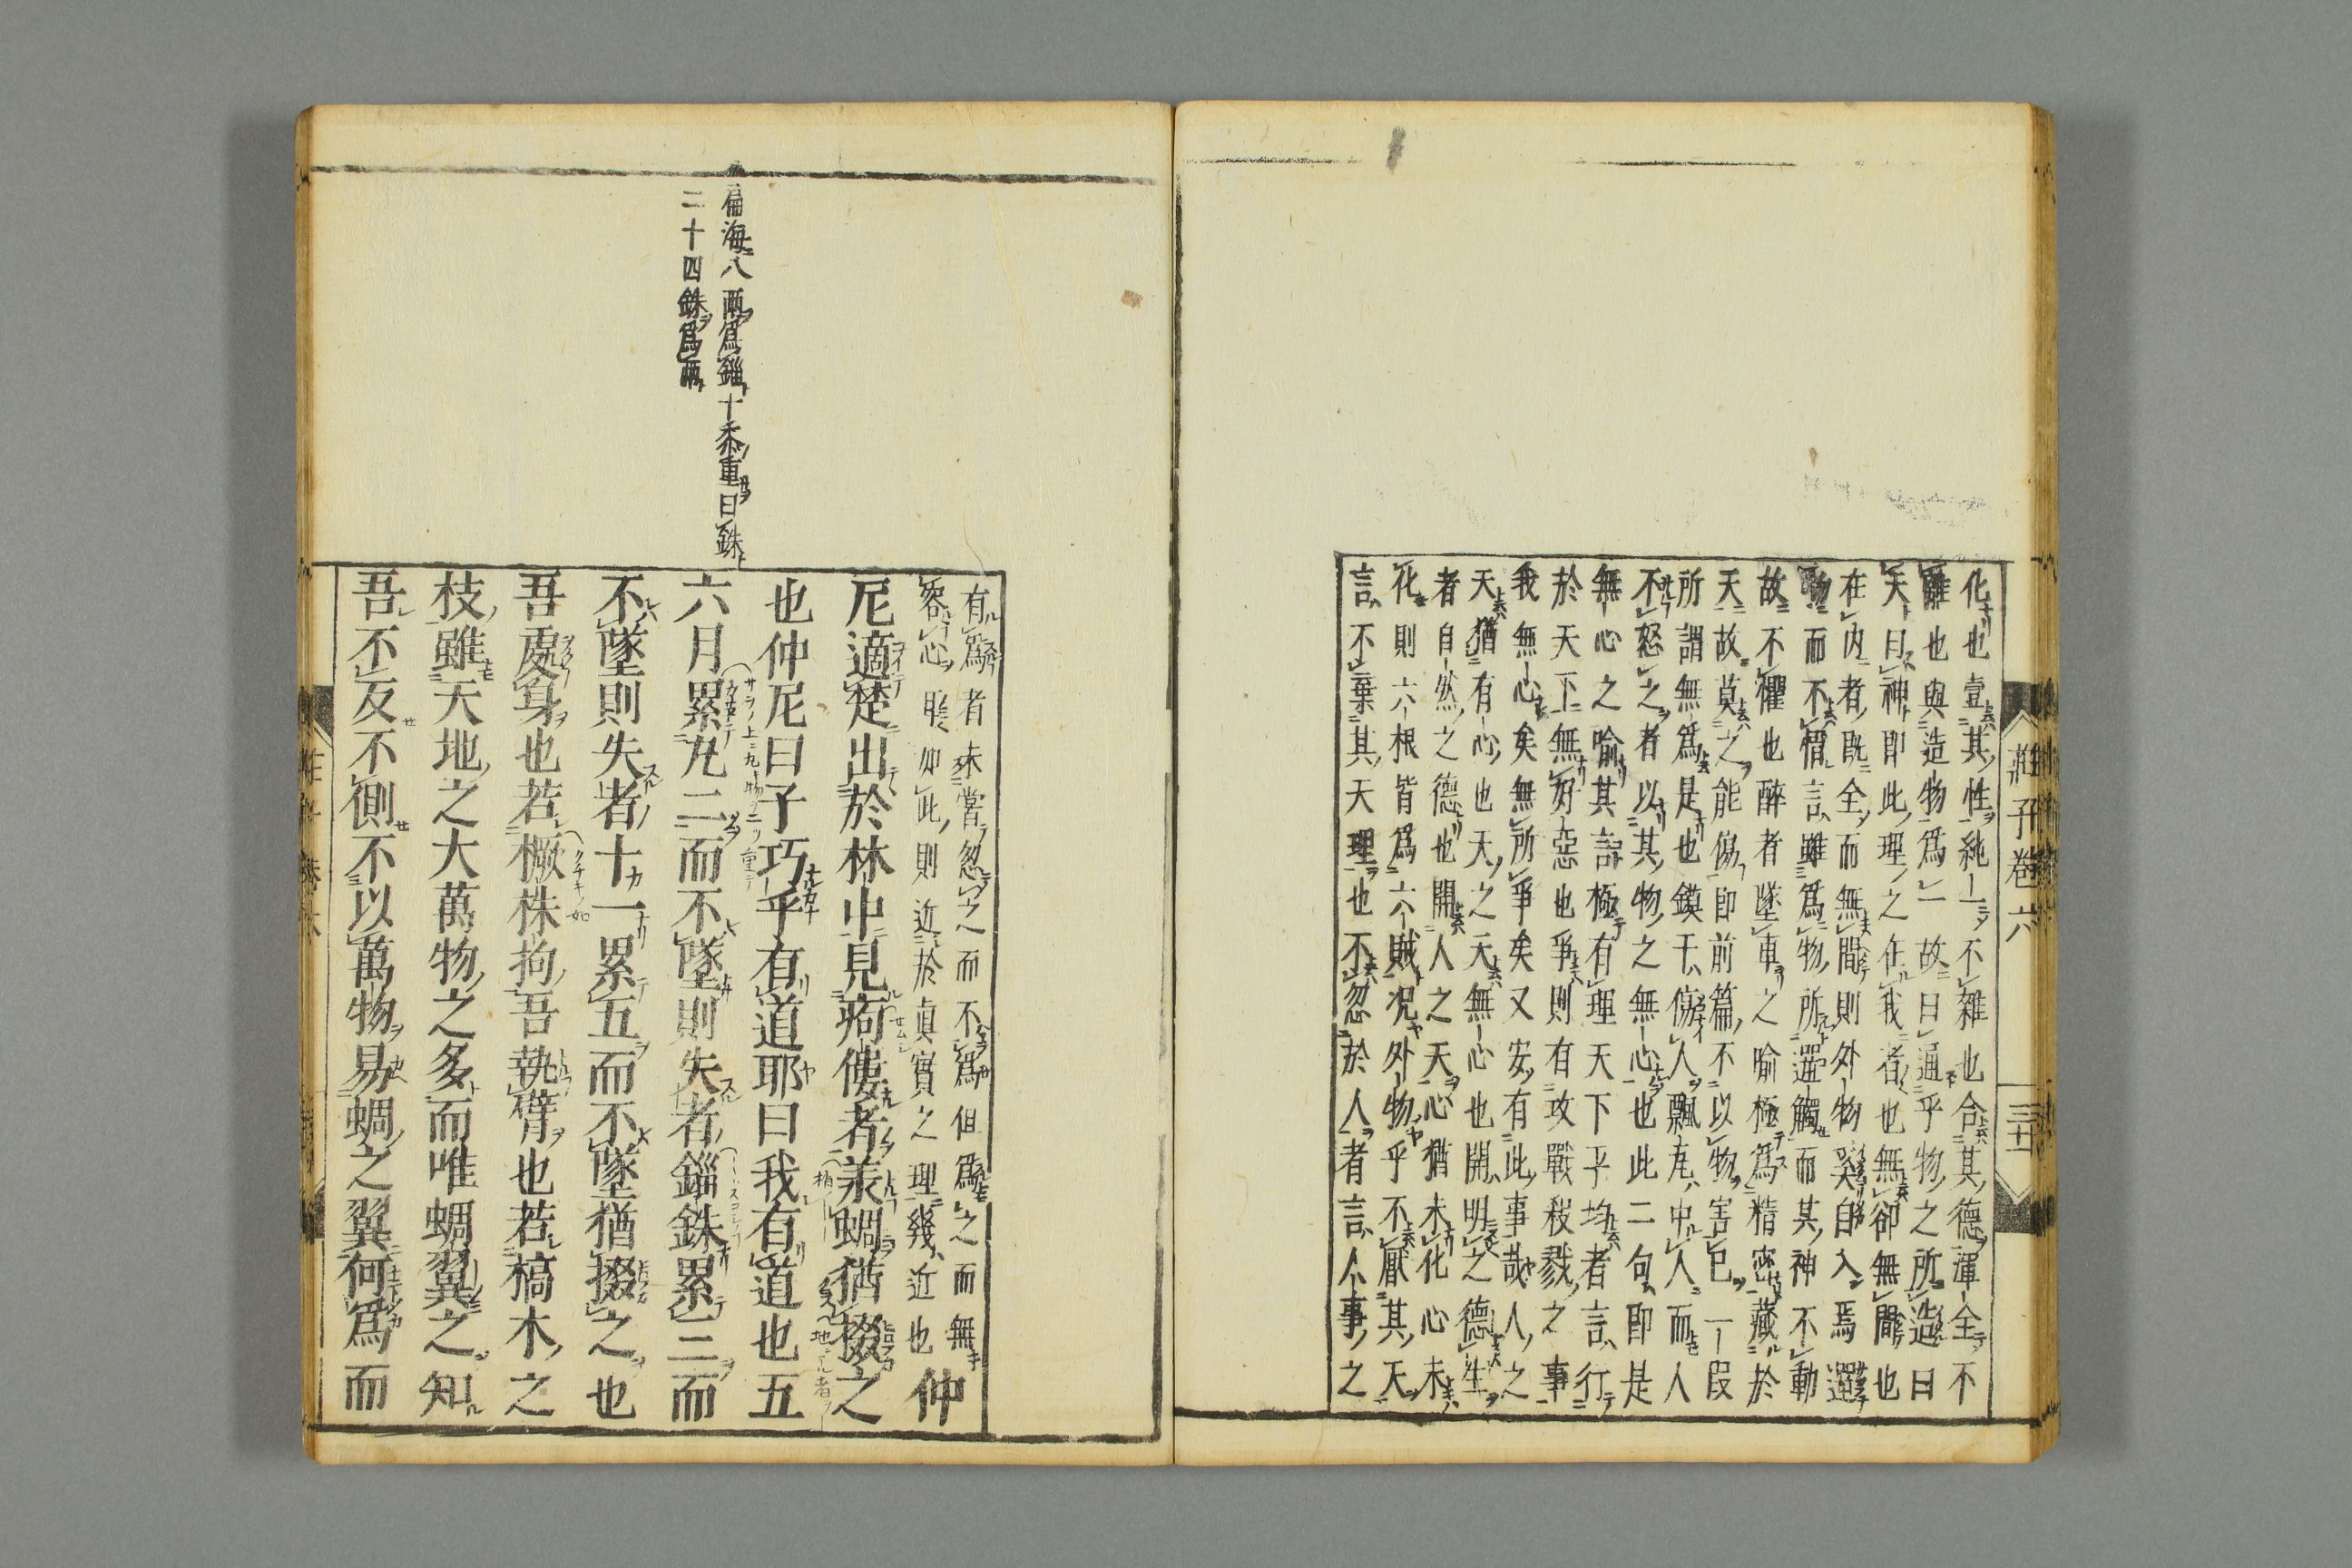 化也壹其性純一不雜也合其德渾全不
離也與造物爲一故曰通乎物之所造曰
天曰神卽此理之在我者也無卻無間也
在內者旣全而無間則外物奚自入焉遻
物而不慴言雖爲物所遻觸而其神不動
故不懼也醉者墜車之喻極爲精密藏於
天故莫之能傷卽前篇不以物害已一段
所謂無爲是也鏌干傷人飄瓦中人而人
不怒之者以其物之無心也此二句卽是
無心之喻其言極有理天下平均者言行
於天下無好惡也爭則有攻戰殺戮之事
我無心矣無所爭矣又安有此事哉人之
天猶有心也天之天無心也開明之德生
者自然之德也開人之天心猶未化心未
化則六根皆爲六賊况外物乎不厭其天
言不棄其天理也不忽於人者言人事之
莊子卷六
三十
有爲者未嘗忽之而不爲但爲之而無
容心耳如此則近於眞實之理幾近也仲
尼適楚出於林中見痀僂者羕蜩猶掇之
也仲尼曰子巧乎有道耶曰我有道也五
六月累九二而不墜則失者錙銖累三而
不墜則失者十一累五而不墜猶掇之也
吾處身也若橛株拘吾執臂也若槁木之
枝雖天地之大萬物之多而唯蜩翼之知
吾不反不側不以萬物易蜩之翼何爲而
海八兩爲錙十黍重曰銖
二十四銖爲兩